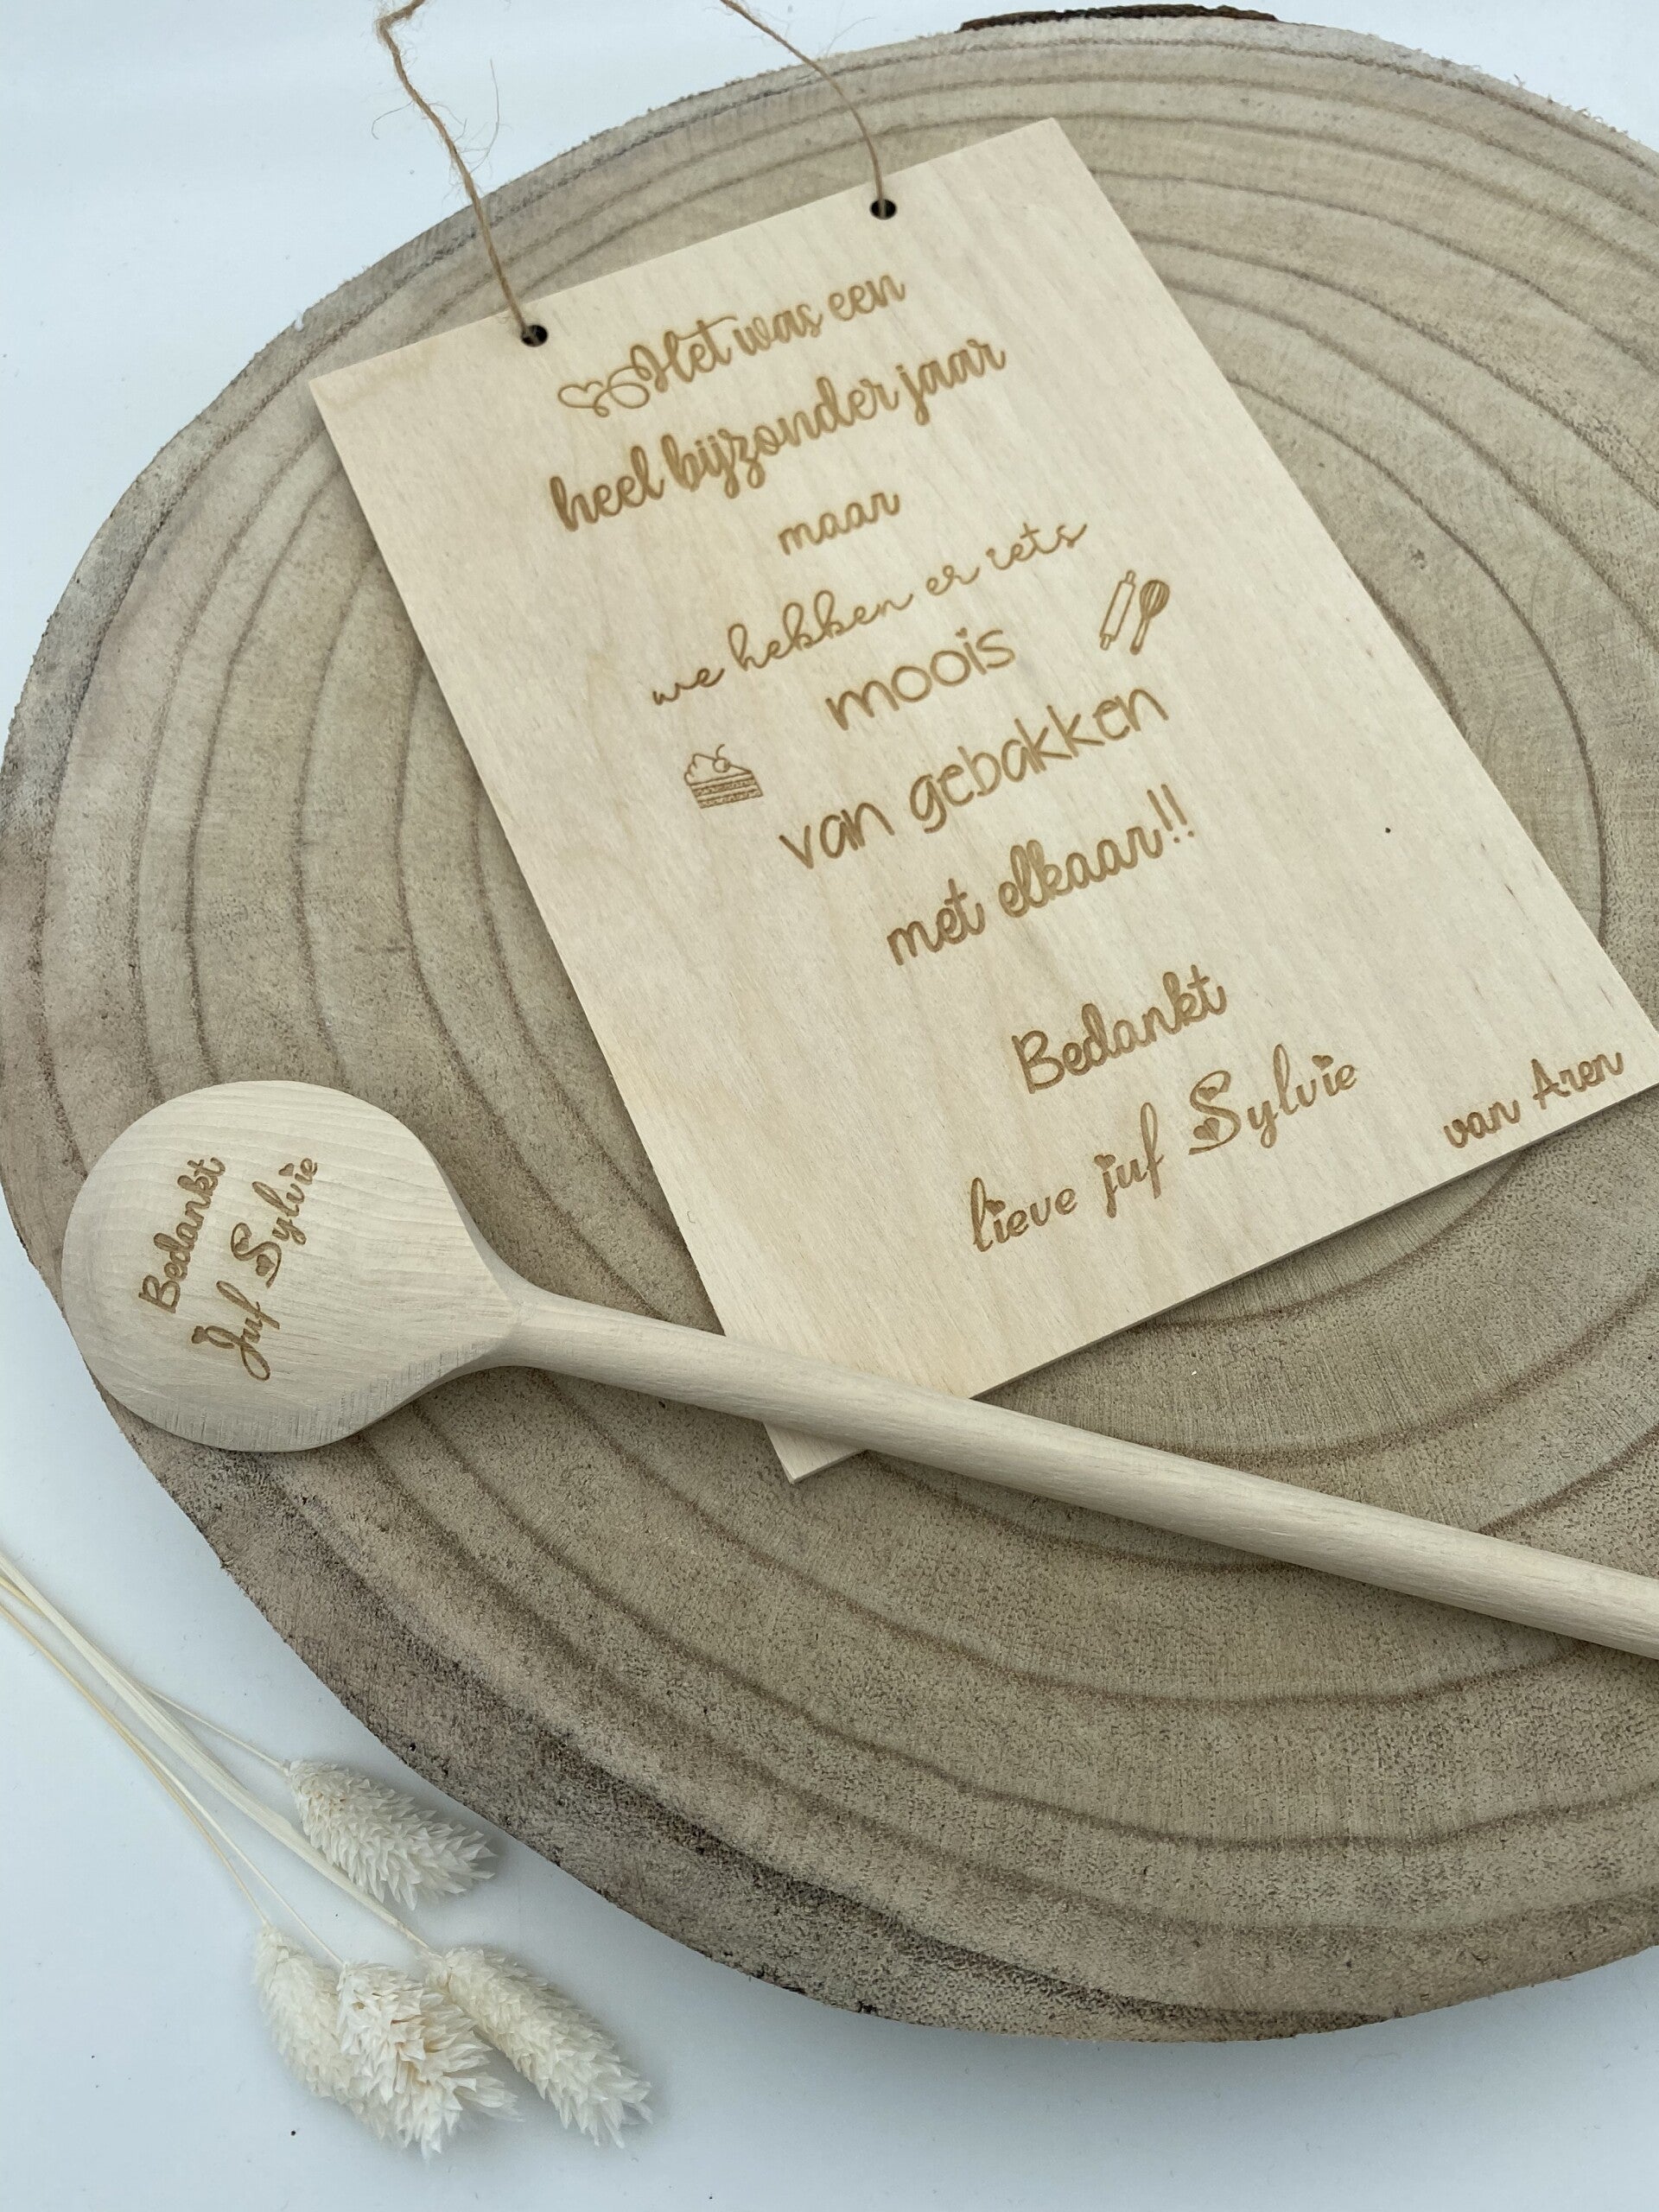 Het was een
heel bijzonder jaar
maar
we hebben er iets
moois
van gebakken
met elkaar!!
Bedankt
lieve juf Sylvie
van Aren
Bedankt
Juf Sylvie